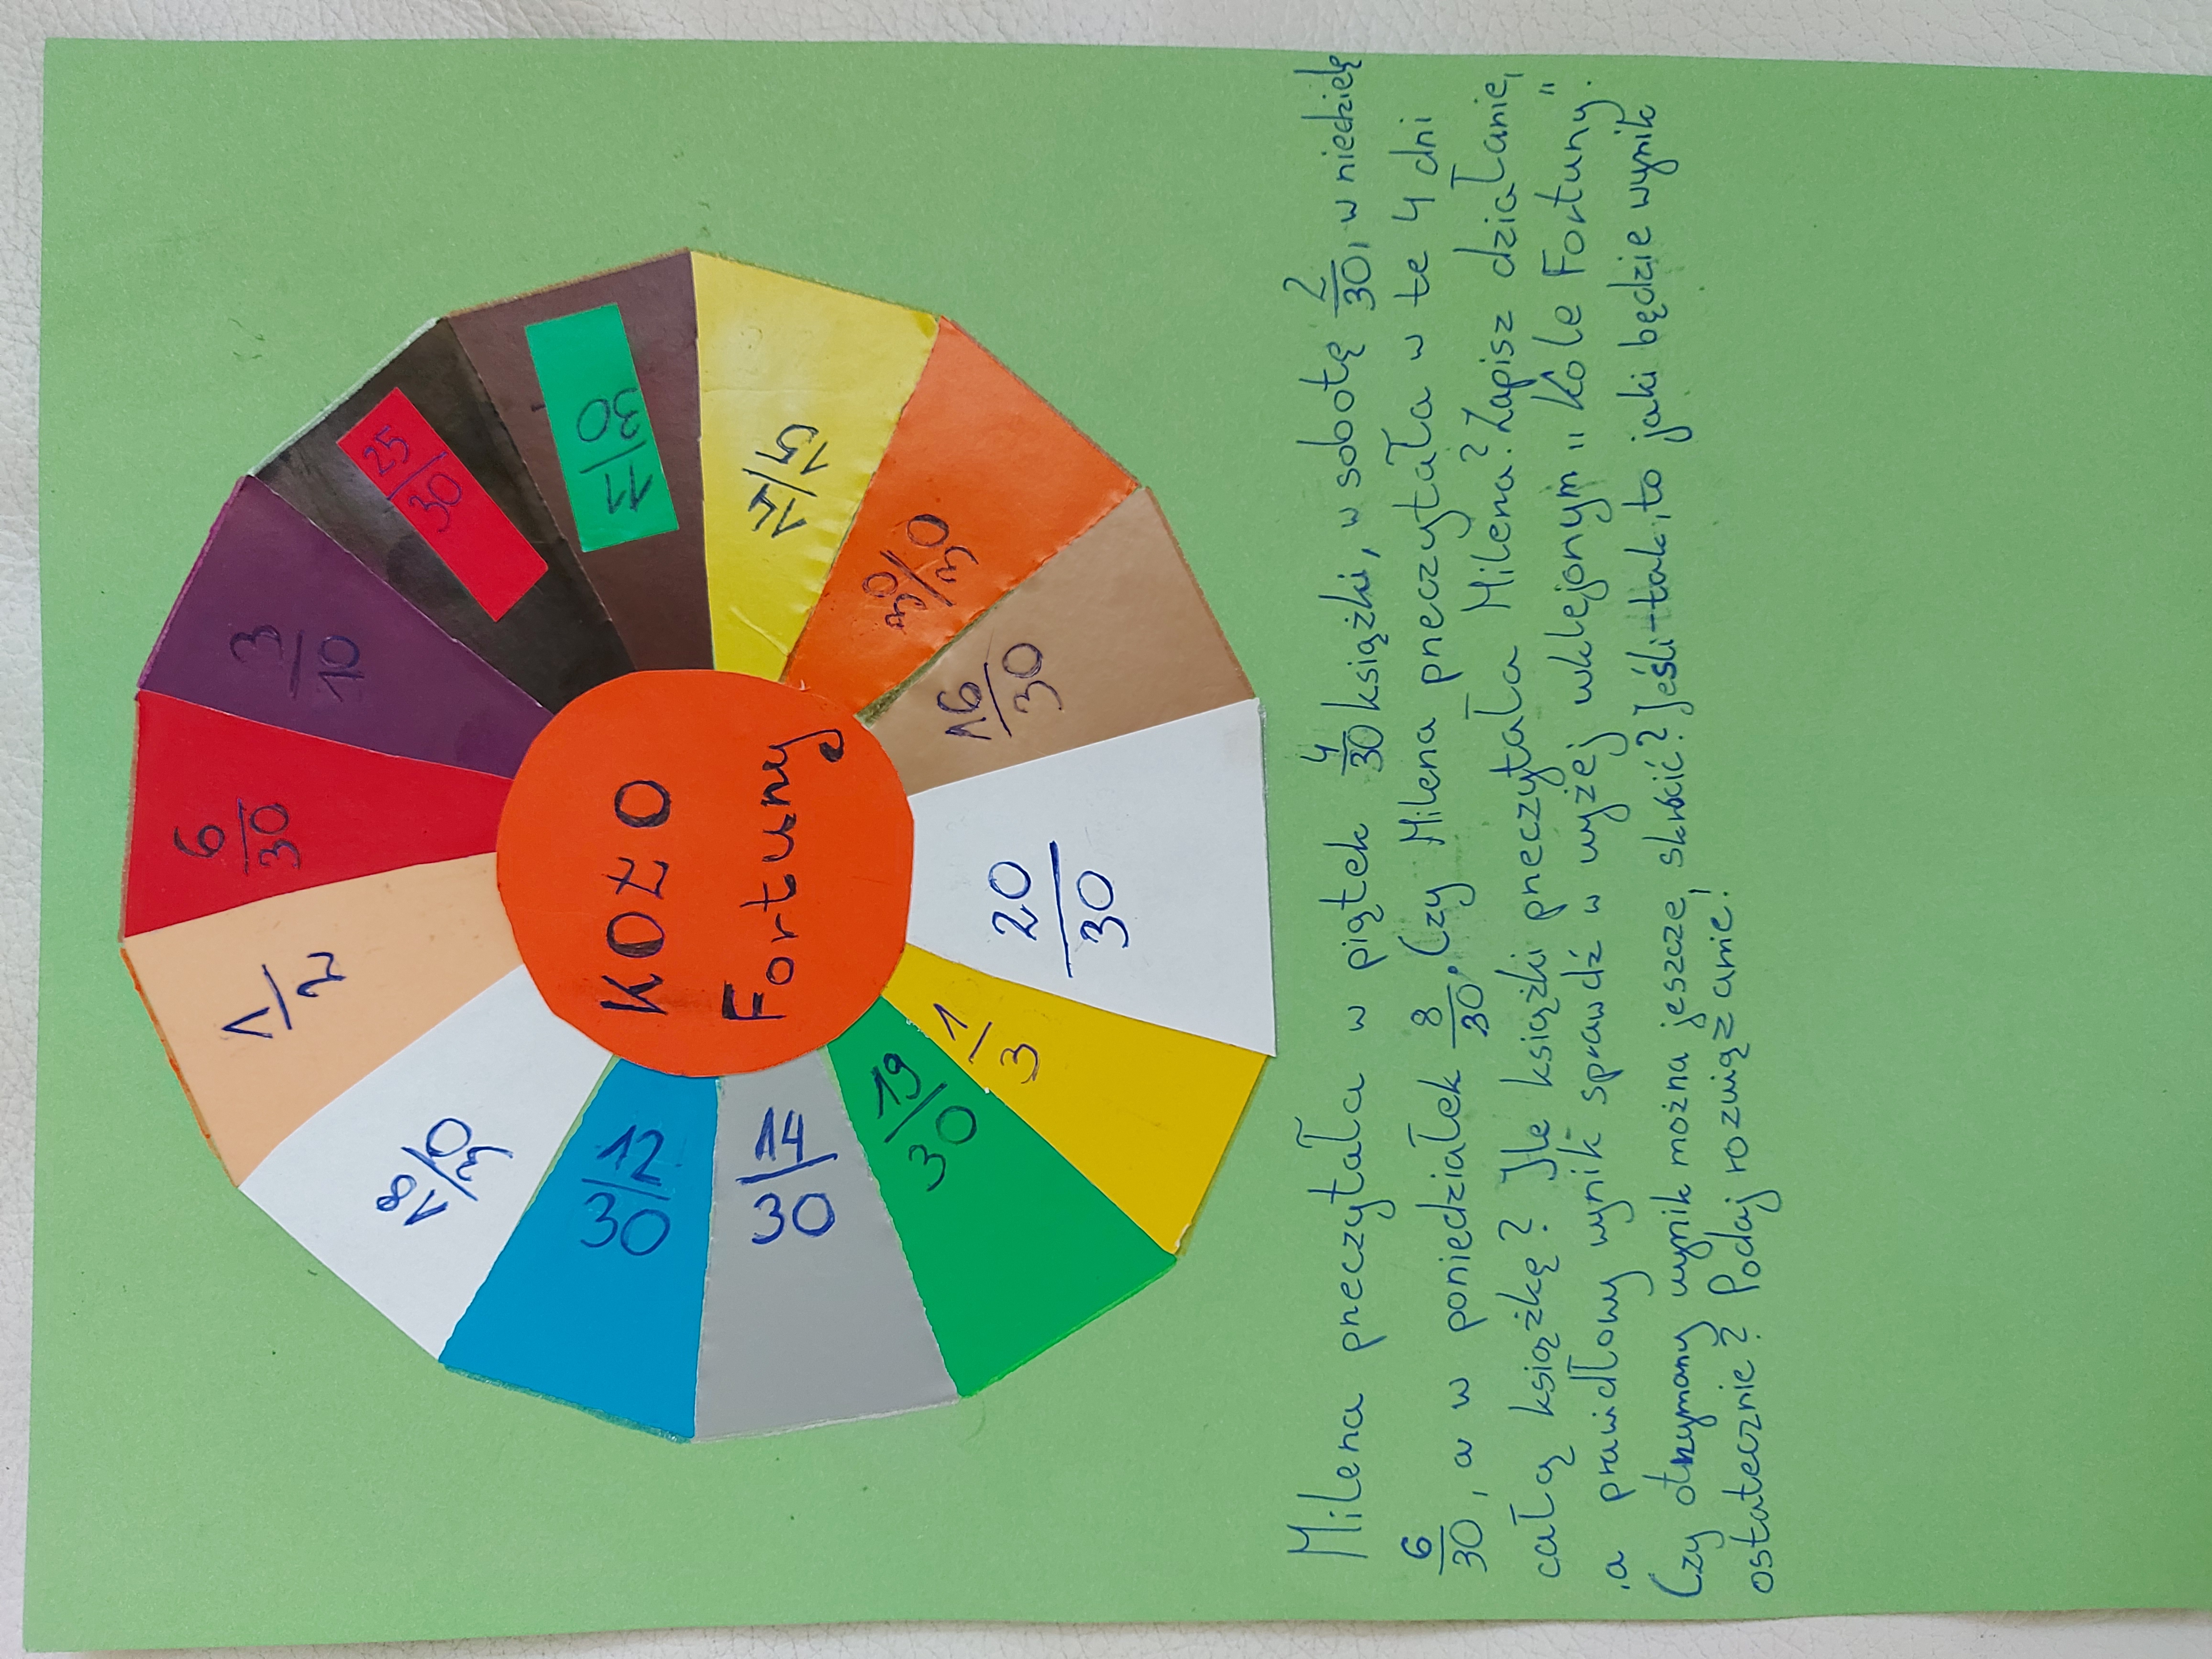 KOŁO
Fortuny
25/30
11/30
14/15
30/30
16/30
20/30
1/3
19/30
14/30
12/30
18/30
1/2
6/30
3/10
Milena przeczytała w piątek 4/30 książki, w sobotę 2/30, w niedzielę
6/30, a w poniedziałek 8/30. Czy Milena przeczytała w te 4 dni
całą książkę? Ile książki przeczytała Milena? Zapisz działanie,
a prawidłowy wynik sprawdź w wyżej wklejonym „Kole Fortuny".
Czy otrzymany wynik można jeszcze skrócić? Jeśli tak, to jaki będzie wynik
ostatecznie? Podaj rozwiązanie!